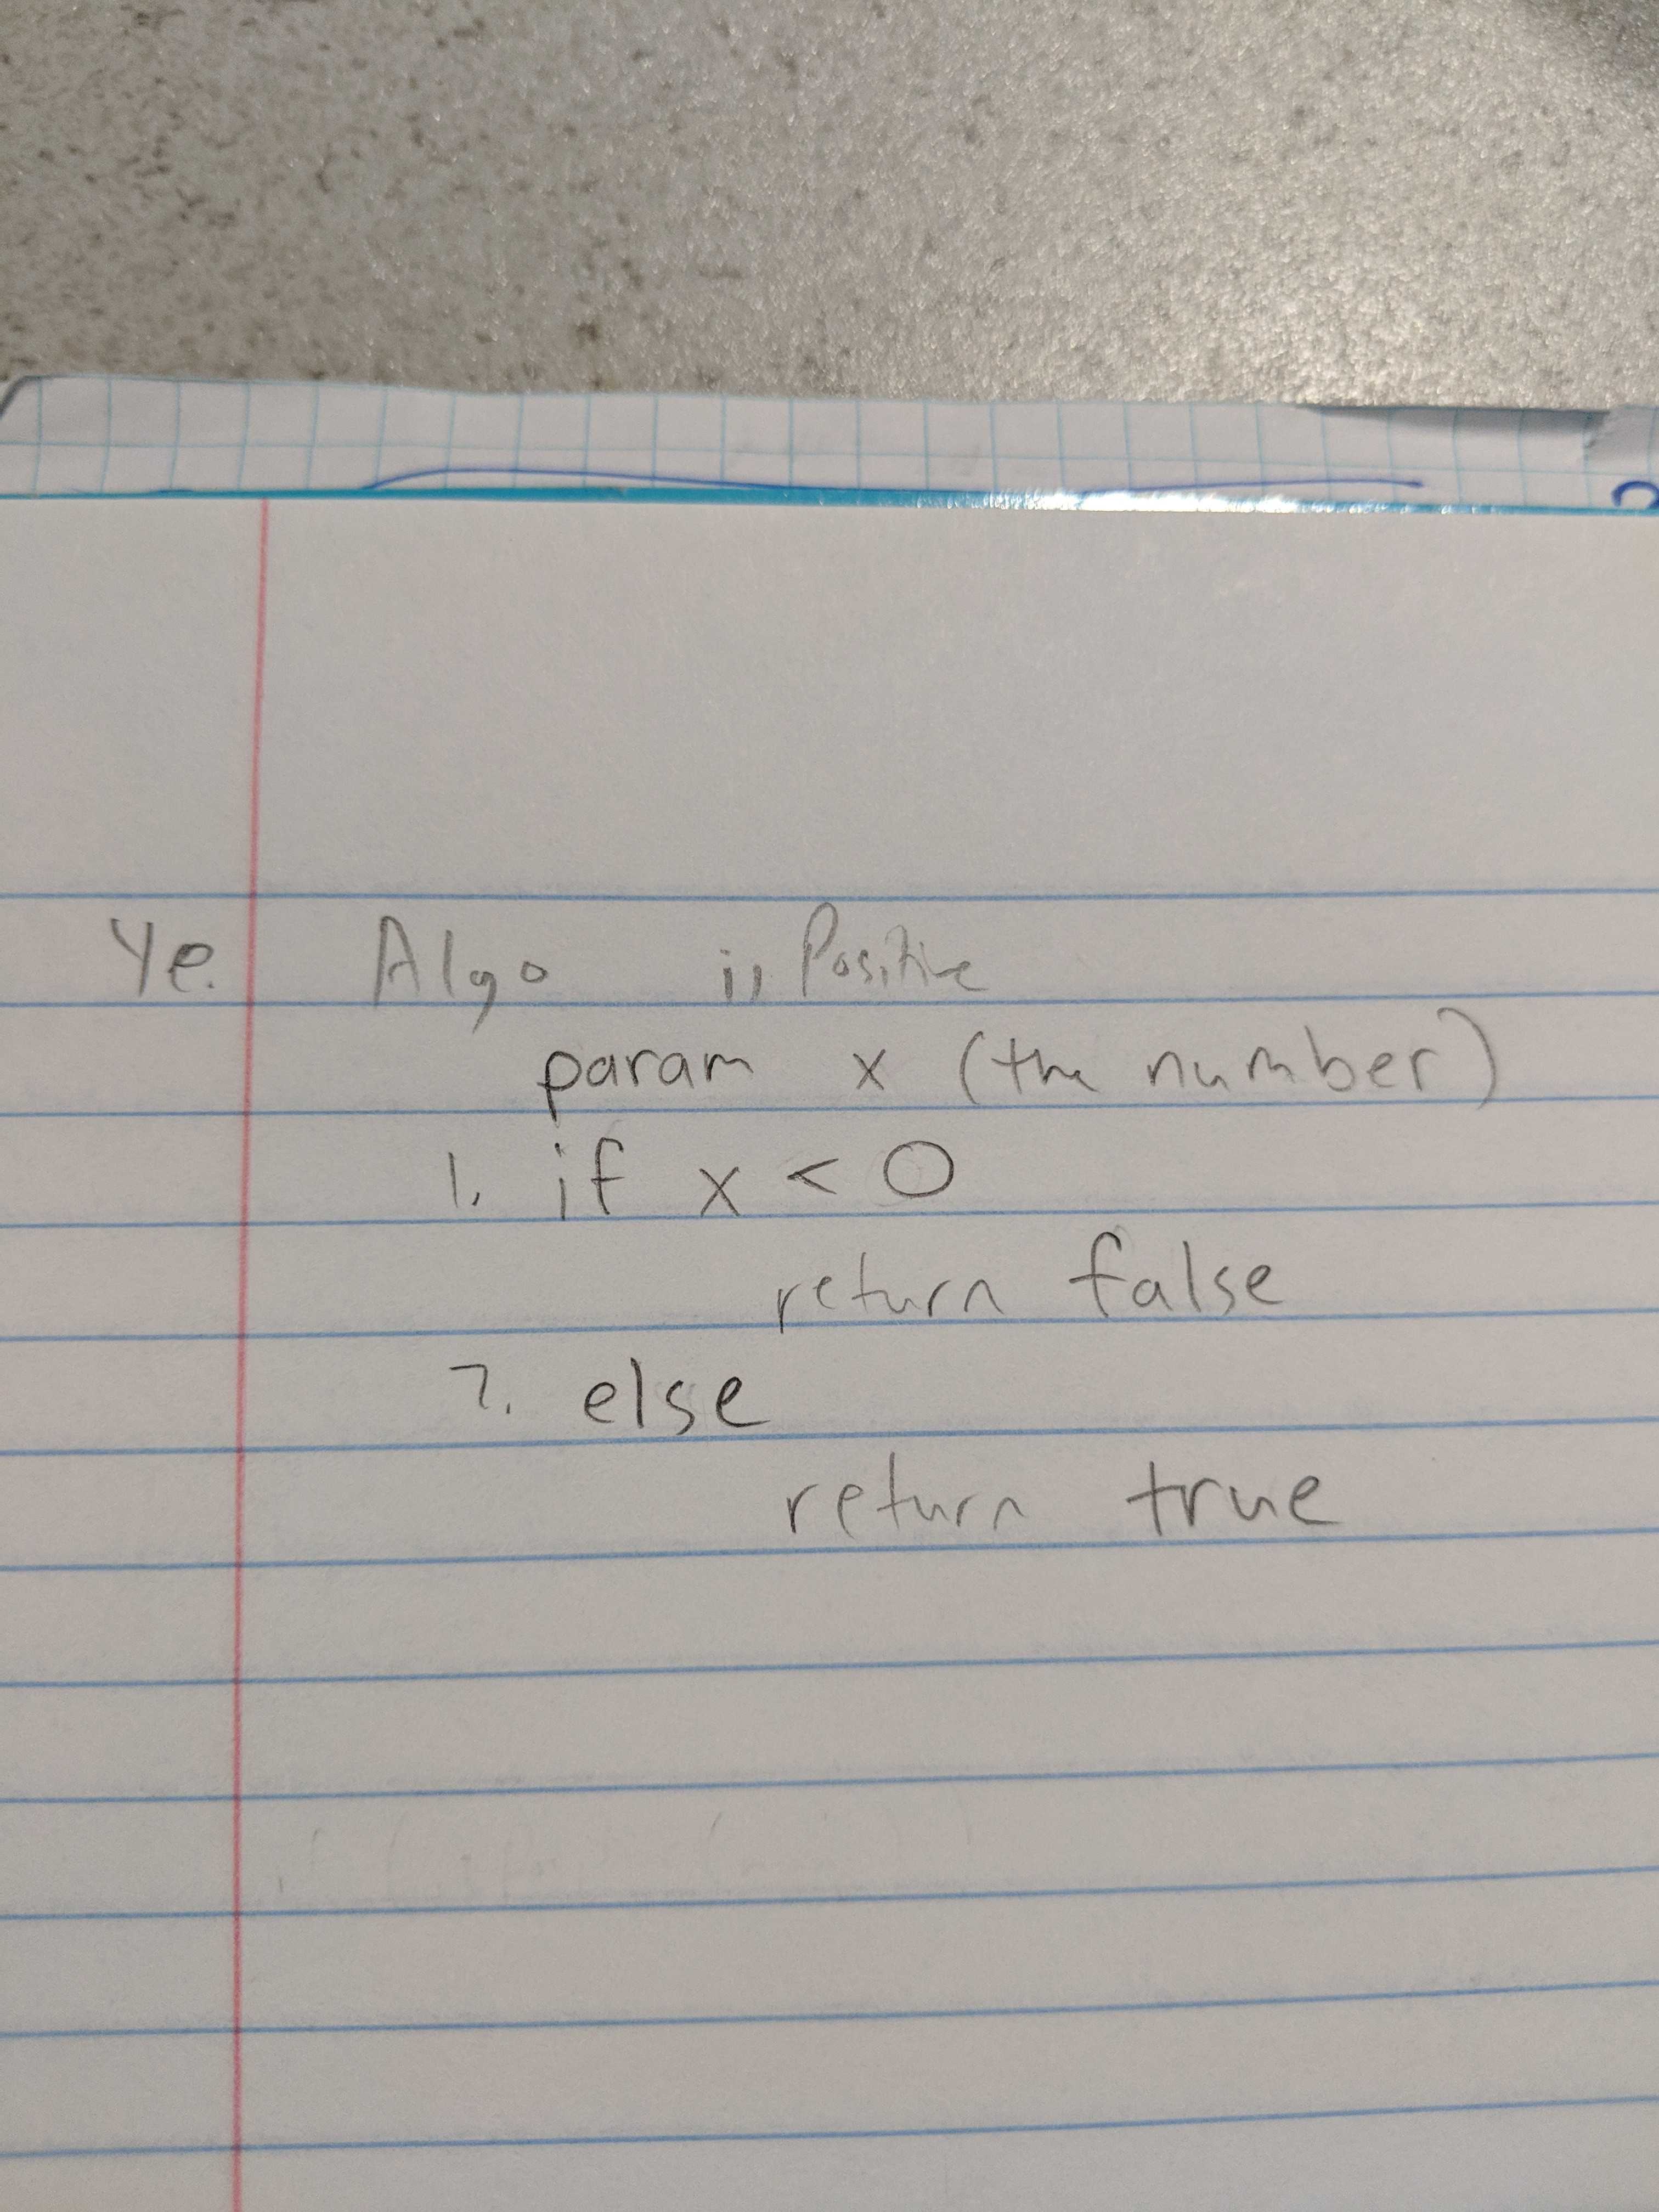 Ye. Algo isPositive
param x (the number)
1. if x < 0
return false
2. else
return true